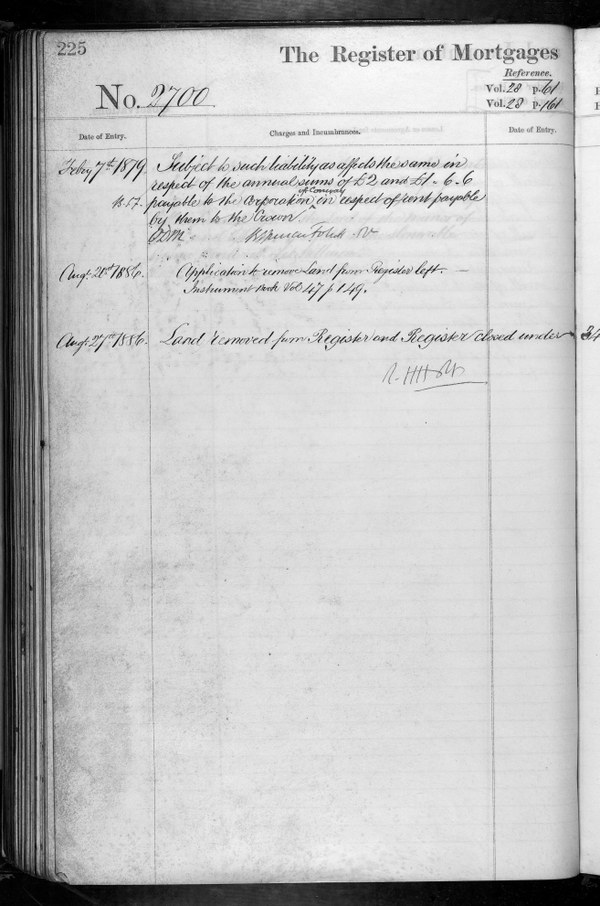 225
The Register of Mortgages
Reference.
No. 2700
Vol. 28 p. 61
Vol. 28 p. 161
Date of Entry.
Charges and Incumbrances.
Date of Entry.
Feby. 7th 1879. Subject to such liability as affects the same in
respect of the annual sums of £2 and £1-6-6
of Conway
payable to the Corporation ^ in respect of rent payable
by them to the Crown
Augt. 20th 1886. Application to remove Land from Register left. —
Instrument Book Vol 47 p 149.
Augt. 27th 1886. Land removed from Register and Register closed under
34